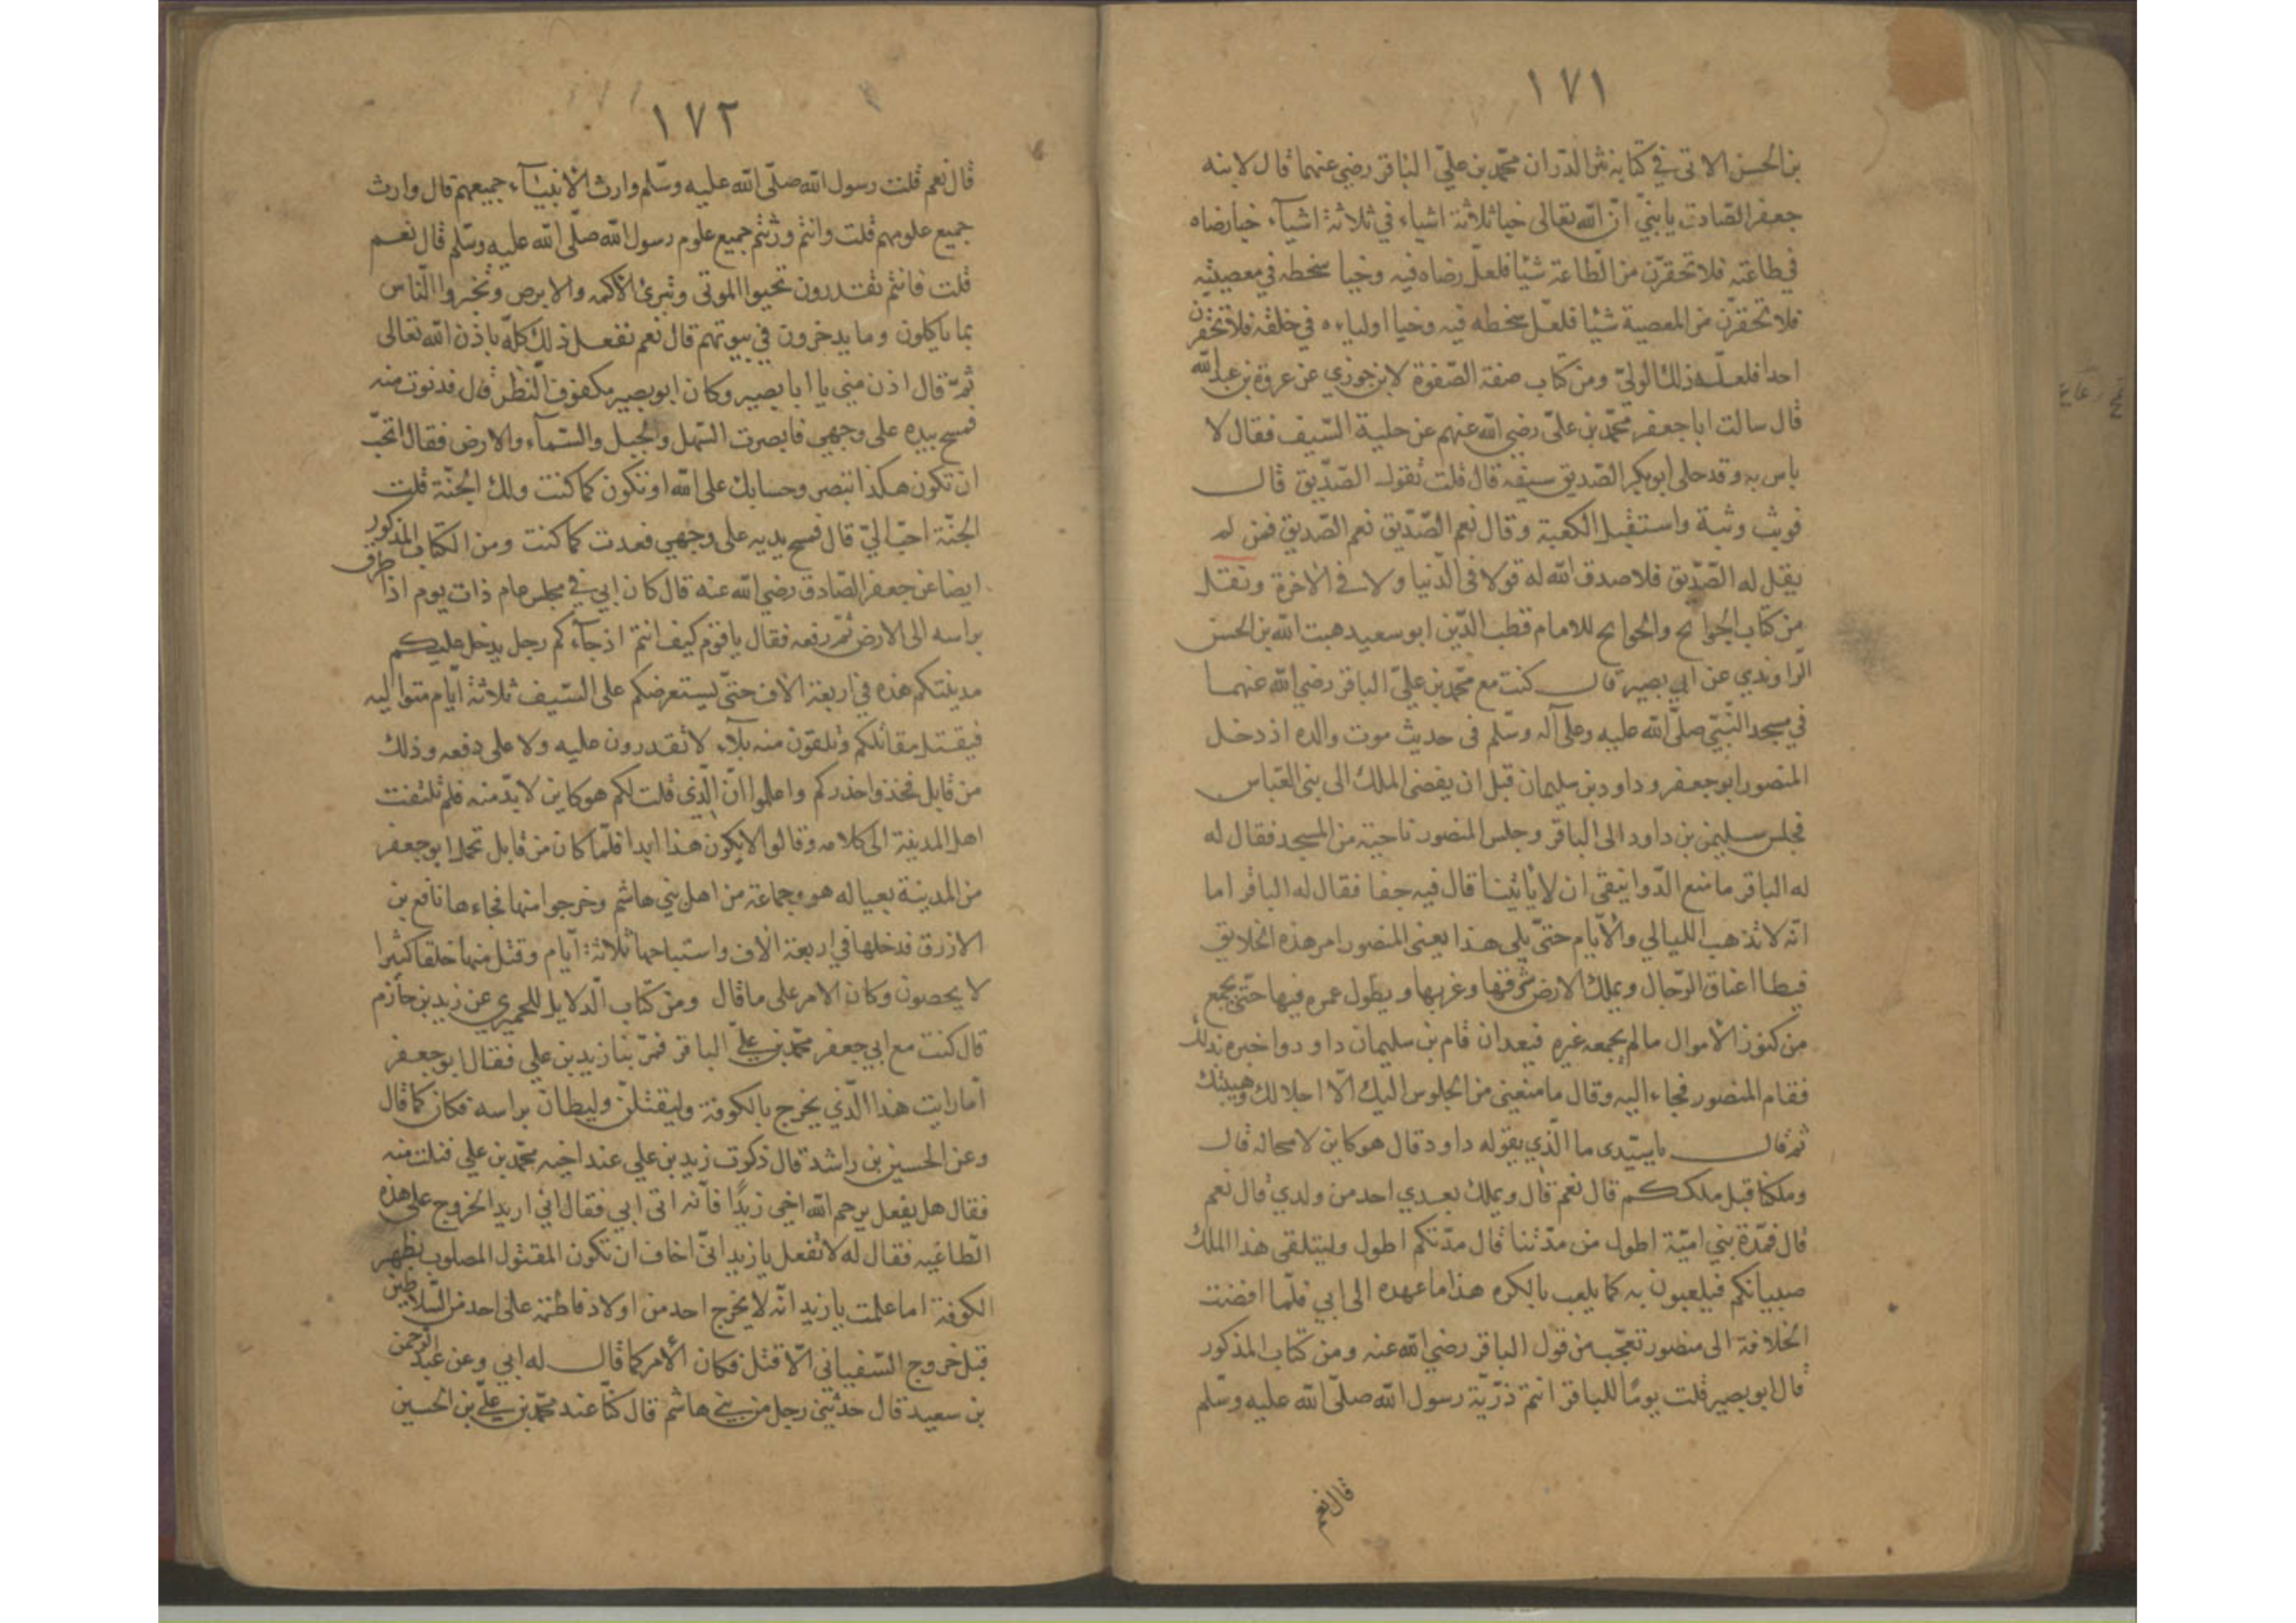 ١٧١
بن الحسن الاتى في كتابه نثر الدّر ان محمّد بن عليّ الباقر رضي عنهما قال لابنه
جعفر الصّادق يا بنيّ انّ الله تعالى خبا ثلاثة اشياء في ثلاثة اشيآء خبا رضاه
في طاعته فلا تحقرّن من الطّاعة شئا فلعلّ رضاه فيه وخبا سخطه في معصيته
فلا تحقرّن من المعصية شئا فلعلّ سخطه فيه وخبا اولياءه في خلقه فلا تحقرن
احدا فلعلّه ذلك الوليّ ومن كتاب صفة الصّفوة لابن جوزي عن عروة بن عبد الله
قال سالت ابا جعفر محمّد بن عليّ رضي الله عنهم عن حلية السّيف فقال لا
باس به وقد حلى ابو بكر الصّديق سيفه قال قلت تقول الصّدّيق قال
فوثب وثبة واستقبل الكعبة وقال نعم الصّدّيق نعم الصّديق فمن لم
يقل له الصّدّيق فلا صدق الله له قولا في الدّنيا ولا في الاخرة ونقل
من كتاب الجوائح والجوائح للامام قطب الدّين ابو سعيد هبت الله بن الحسن
الرّاوندي عن ابي بصير قال كنت مع محمّد بن عليّ الباقر رضي الله عنهما
في مسجد النّبيّ صلّى الله عليه وعلى آله وسلّم فى حديث موت والده اذ دخل
المنصور ابو جعفر وداود بن سليمان قبل ان يفضى الملك الى بنى العبّاس
فجلس سليمن بن داود الى الباقر وجلس المنصور ناحية من المسجد فقال له
له الباقر ما منع الدّوانيقي ان لا ياتينا قال فيه جفا فقال له الباقر اما
انّه لا تذهب الليالي والأيّام حتىّ يلى هذا يعنى المنصور امر هذه الخلايق
فيطا اعناق الرّجال ويملك الارض شرقها وغربها ويطول عمره فيها حتىّ يجمع
من كنوز الأموال ما لم يجمعه غيره فبعد ان قام بن سليمان داودوا خبره بذلك
فقام المنصور فجاء اليه وقال ما منعنى من الجلوس اليك الّا اجلالك وهيبتك
ثم قال يا سيّدى ما الّذي يقوله داود قال هو كاين لا محاله قال
وملكنا قبل ملككم قال نعم قال ويملك بعدي احد من ولدي قال نعم
قال فمدّة بني اميّة اطول من مدّتنا قال مدّتكم اطول وليتلقى هذا الملك
صبيانكم فيلعبون به كما يلعب بالكره هذا ما عهده الى ابي فلمّا افضت
الخلافة الى منصور تعجّب من قول الباقر رضي الله عنه ومن كتاب المذكور
قال ابو بصير قلت يومًا للباقر انتم ذرّيّة رسول الله صلّى الله عليه وسلّم
قال نعم
١٧٢
قال نعم قلت رسول الله صلّى الله عليه وسّلم وارث الأنبيآء جميعهم قال وارث
جميع علومهم قلت وانتم ورثتم جميع علوم رسول الله صلّى الله عليه وسّلم قال نعم
قلت فانتم تقدرون تحيوا الموتى وتبرئ الأكمه والابرص وتخبروا النّاس
بما ياكلون وما يدخرون في بيوتهم قال نعم نفعل ذلك كلّه باذن الله تعالى
ثمّ قال اذن مني يا ابا بصير وكان ابو بصير مكفوف النّظر قال فدنوت منه
فمسح بيده على وجهي فابصرت السّهل والجبل والسّمآء والارض فقال اتحبّ
ان تكون هكذا تبصر وحسابك على الله او تكون كما كنت ولك الجنّة قلت
الجنّة احبّ اليّ قال فمسح بديه على وجهي فعدت كما كنت ومن الكتاب المذكور
ايضا عن جعفر الصّادق رضي الله عنه قال كان ابي في مجلس عام ذات يوم اذا طرق
براسه الى الارض ثمّ رفعه فقال يا قوم كيف انتم اذ جآءكم رجل يدخل عليكم
مدينتكم هذه في اربعة الاف حتّى يستعرضكم على السّيف ثلاثة ايّام متواليه
فيقتل مقاتلكم وتلقون منه بلآء لا تقدرون عليه ولا على دفعه وذلك
من قابل فخذوا حذركم واعلموا انّ الّذى قلت لكم هو كاين لا بدّ منه فلم تلتفت
اهل المدينة الى كلامه وقالوا لا يكون هذا ابدا فلمّا كان من قابل تحمل ابو جعفر
من المدينة بعياله هو وجماعة من اهل بني هاشم وخرجوا منها فجاءها نافع بن
الازرق فدخلها في اربعة الأف واستباحها ثلاثة ايّام وقتل منها خلقا كثيرا
لا يحصون وكان الامر على ما قال ومن كتاب الدّلايل للحميري عن زيد بن حازم
قال كنت مع ابي جعفر محمّد بن عليّ الباقر فمرّ بنا زيد بن علي فقال ابو جعفر
أما رايت هذا الّذي يخرج بالكوفة وليقتلنّ وليطان براسه فكان كما قال
وعن الحسين بن راشد قال ذكرت زيد بن علي عند اخيه محمّد بن علي فنلت منه
فقال هل يفعل يرحم الله اخي زيدًا فأنّه اتى ابي فقال انّي اريد الخروج على هذه
الطّاغيه فقال له لا تفعل يا زيد انىّ اخاف ان تكون المقتول المصلوب بظهر
الكوفة اما علمت يا زيد انّه لا يخرج احد من اولاد فاطمة على احد من السّلاطين
قبل خروج السّفياني الّا قتل فكان الأمر كما قال له ابي وعن عبد الرّحمن
بن سعيد قال حدّثني رجل من بني هاشم قال كنّا عند محمّد بن عليّ بن الحسين